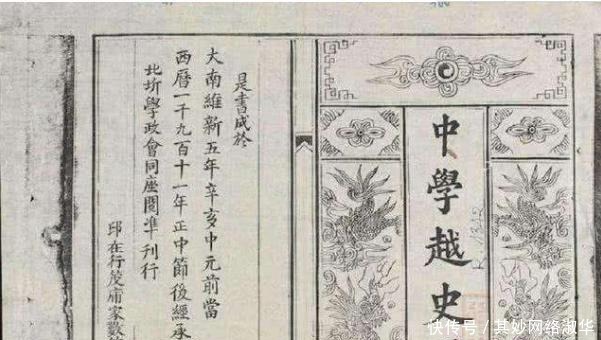 中學越史
是書成於
大南維新五年辛亥中元前當
西曆一千九百十一年正中節後經承
北圻學政會同座閱準刊行
印在行茂庯家
快传号／其妙网络淑华